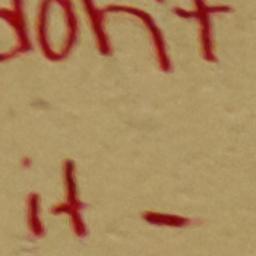 don't
it -